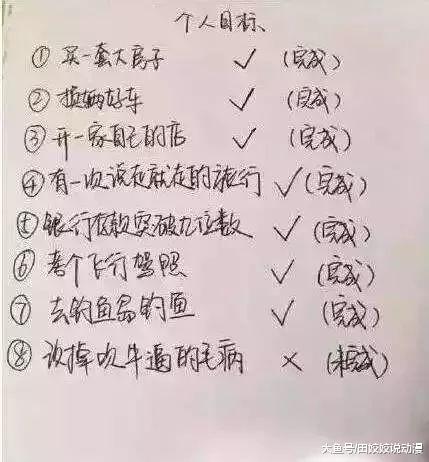 个人目标
① 买一套大房子 ✓ (完成)
② 换辆好车 ✓ (完成)
③ 开一家自己的店 ✓ (完成)
④ 有一次说走就走的旅行 ✓ (完成)
⑤ 银行存款突破九位数 ✓ (完成)
⑥ 考个飞行驾照 ✓ (完成)
⑦ 去钓鱼岛钓鱼 ✓ (完成)
⑧ 改掉吹牛逼的毛病 × (未完成)
大鱼号/田姣姣说动漫